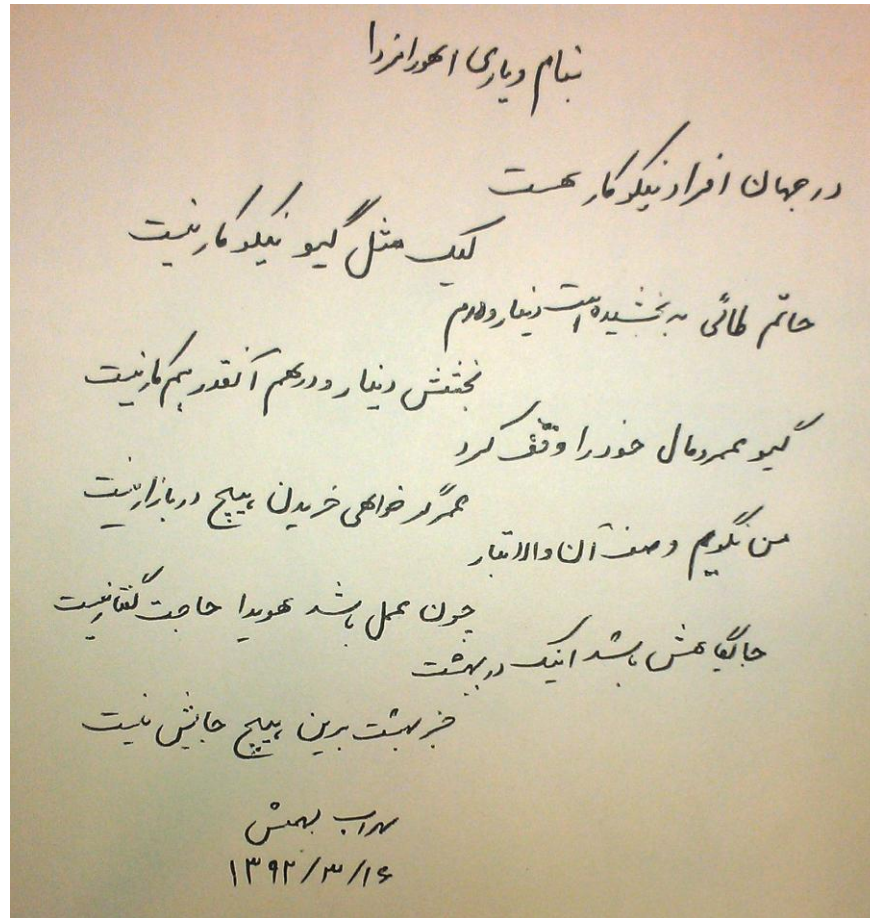 بنام و یاری اهورامزدا
در جهان افراد نیکوکار هست
لیک مثل گیو نیکوکار نیست
حاتم طائی به بخشیده است دینار و درهم
بخشش دینار و درهم آنقدر هم کار نیست
گیو عمر و مال خود را وقف کرد
عمر گر خواهی خریدن هیچ در بازار نیست
من نگویم وصف آن والاتبار
چون عمل باشد هویدا حاجت گفتار نیست
جایگاهش باشد اینک در بهشت
جز بهشت برین هیچ جایش نیست
سهراب
۱۳۹۲/۳/۱۶